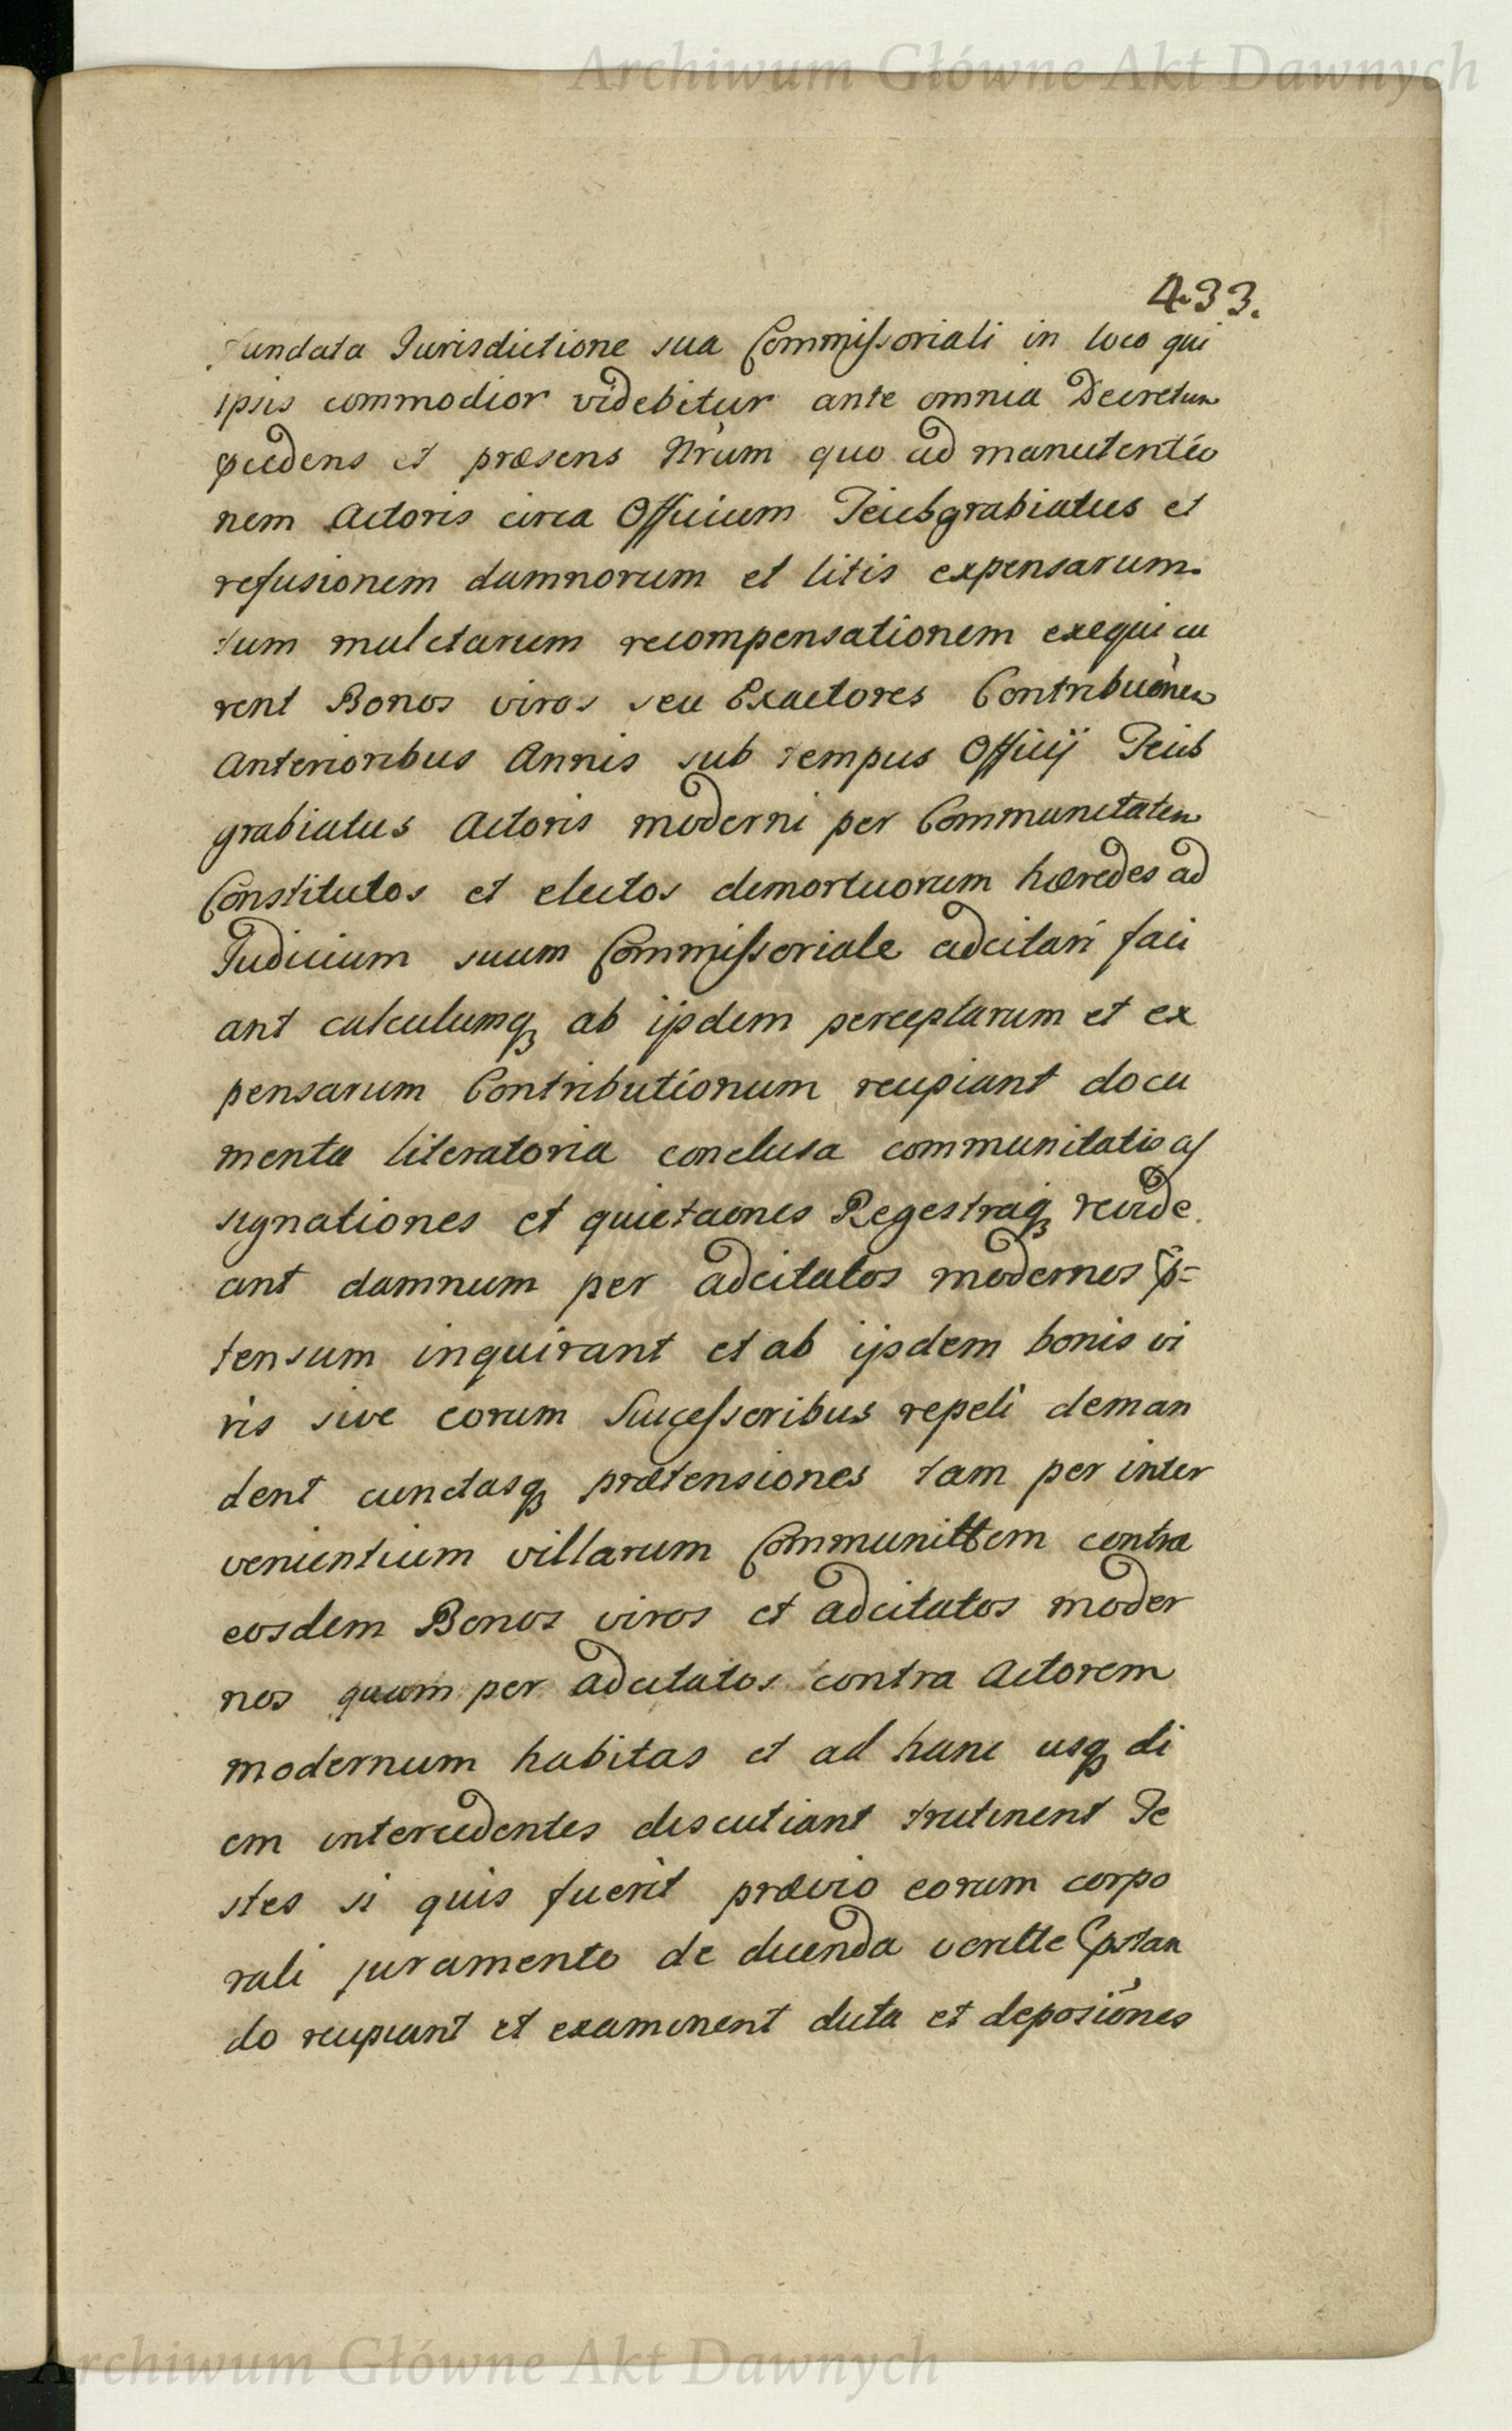 Archiwum Główne Akt Dawnych
433.
fundata Jurisdictione sua Commissoriali in loco qui
ipsis commodior videbitur ante omnia Decretum
præcedens et præsens Nrum quo ad manutentio
nem Actoris circa Officium Teichgrabiatus et
refusionem damnorum et litis expensarum
tum mulctarum recompensationem exequi cu
rent Bonos viros seu Exactores Contribuonem
Anterioribus Annis sub tempus Officij Teich
grabiatus Actoris moderni per Communitatem
Constitutos et electos demortuorum hæredes ad
Judicium suum Commissoriale adcitari faci
ant calculumq ab ijsdem perceptarum et ex
pensarum Contributionum recipiant docu
menta literatoria conclusa communitatis as
signationes et quietaones Regestraq revide
ant damnum per adcitatos modernos præ=
tensum inquirant et ab ijsdem bonis vi
ris sive eorum Successoribus repeti deman
dent cunctasq prætensiones tam per inter
venientium villarum Communittem contra
eosdem Bonos viros et adcitatos moder
nos quam per adcitatos contra Actorem
modernum habitas et ad hunc usq di
em intercedentes discutiant trutinent Te
stes si quis fuerit prævio eorum corpo
rali juramento de dicenda veritte præstan
do recipiant et examinent dicta et deposiones
Archiwum Główne Akt Dawnych